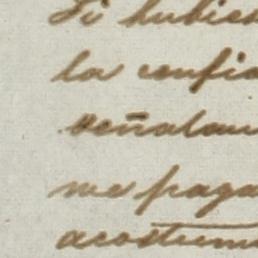 Si hubie
la confia
señalan
me paga
acostum